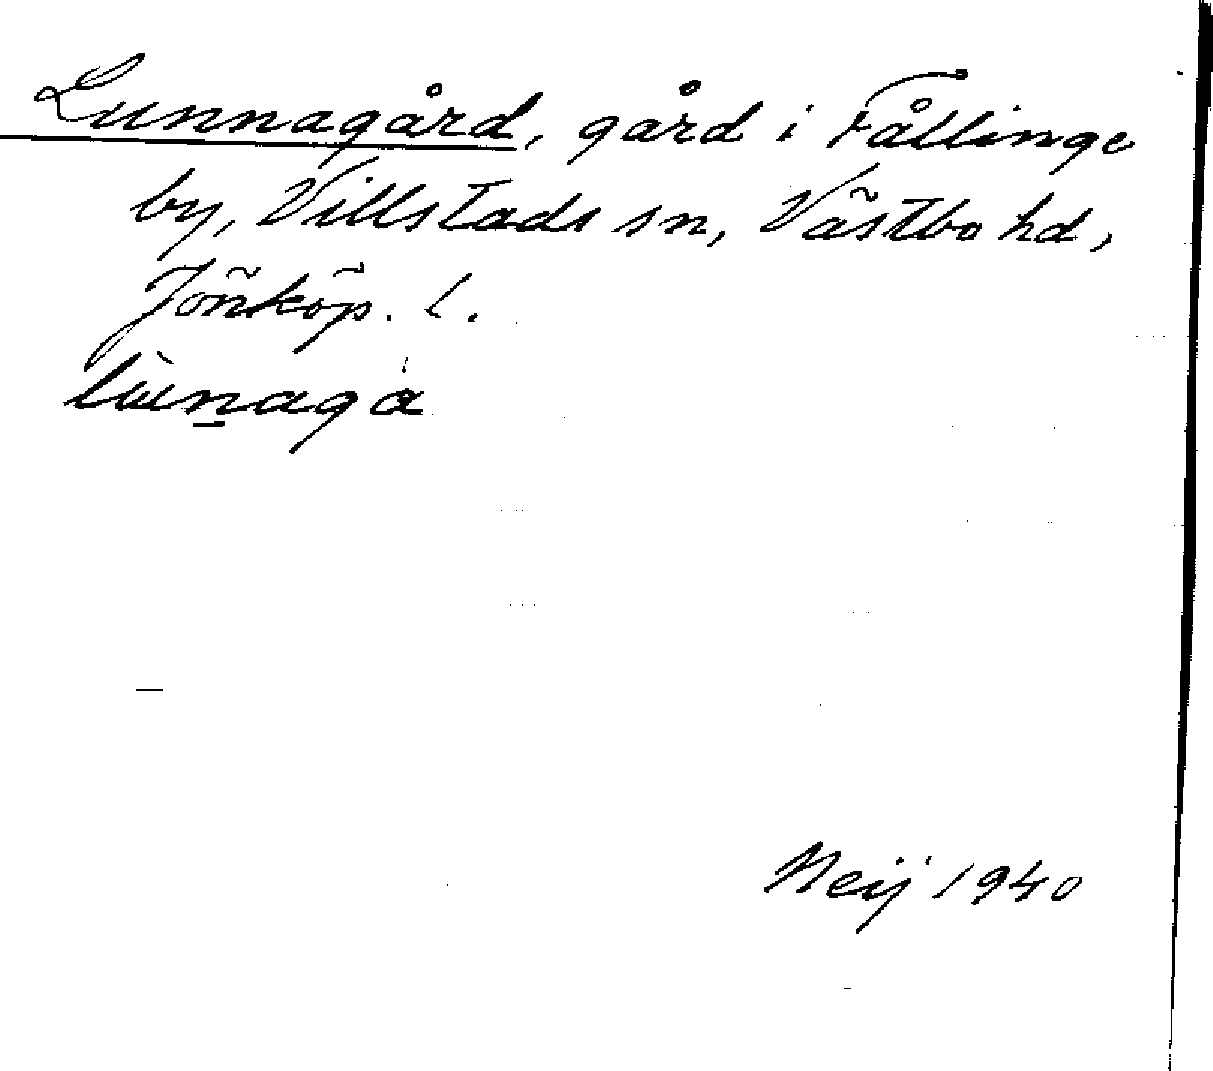 Lunnagård, gård i Fållinge
by, Villstads sn, Västbo hd,
Jönköp. l.
Neij 1940